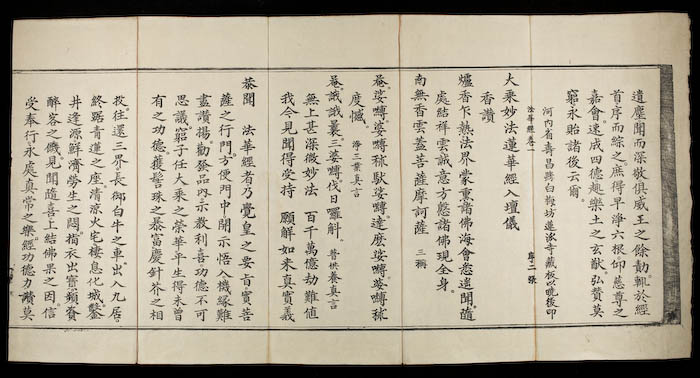 遺塵聞而深敬俱威王之餘勣輒於經
首序而綜之。庶得早淨六根仰慈尊之
嘉會速成四德趣樂土之玄猷弘贊莫
窮永貽諸後云爾。
河内省壽昌縣白梅坊蓮派寺藏板以晚後印
法華經卷一 序二張
大乘妙法蓮華經入壇儀
香讚
爐香乍熱法界蒙熏諸佛海會悉遥聞。隨
處結祥雲誠意方慇諸佛現全身。
南無香雲蓋菩薩摩訶薩 三稱
唵娑嚩婆嚩秫馱娑嚩達麼娑嚩婆嚩秫
度憾。 淨三業真言
唵誐誐曩三婆嚩伐日囉斛。 普供養真言
無上甚深微妙法 百千萬億劫難值
我今見聞得受持 願解如來真實義
恭聞 法華經者乃覺皇之要旨實菩
薩之行門。方便門中開示悟入機緣難
盡讚揚。勸發品内示教利喜功德不可
思議。窮子任大乘之榮華平生得未曾
有之功德。獲髻珠之暴富慶針芥之相
投。往還三界長御白牛之車出入九居。
終踞青蓮之座。清涼火宅棲息化城。鑿
井逢源鮮濟勞生之悶。指衣出寶頓賚
醉客之饑。見聞隨喜上結佛果之因。信
受奉行永處真常之樂。經功德力讚莫